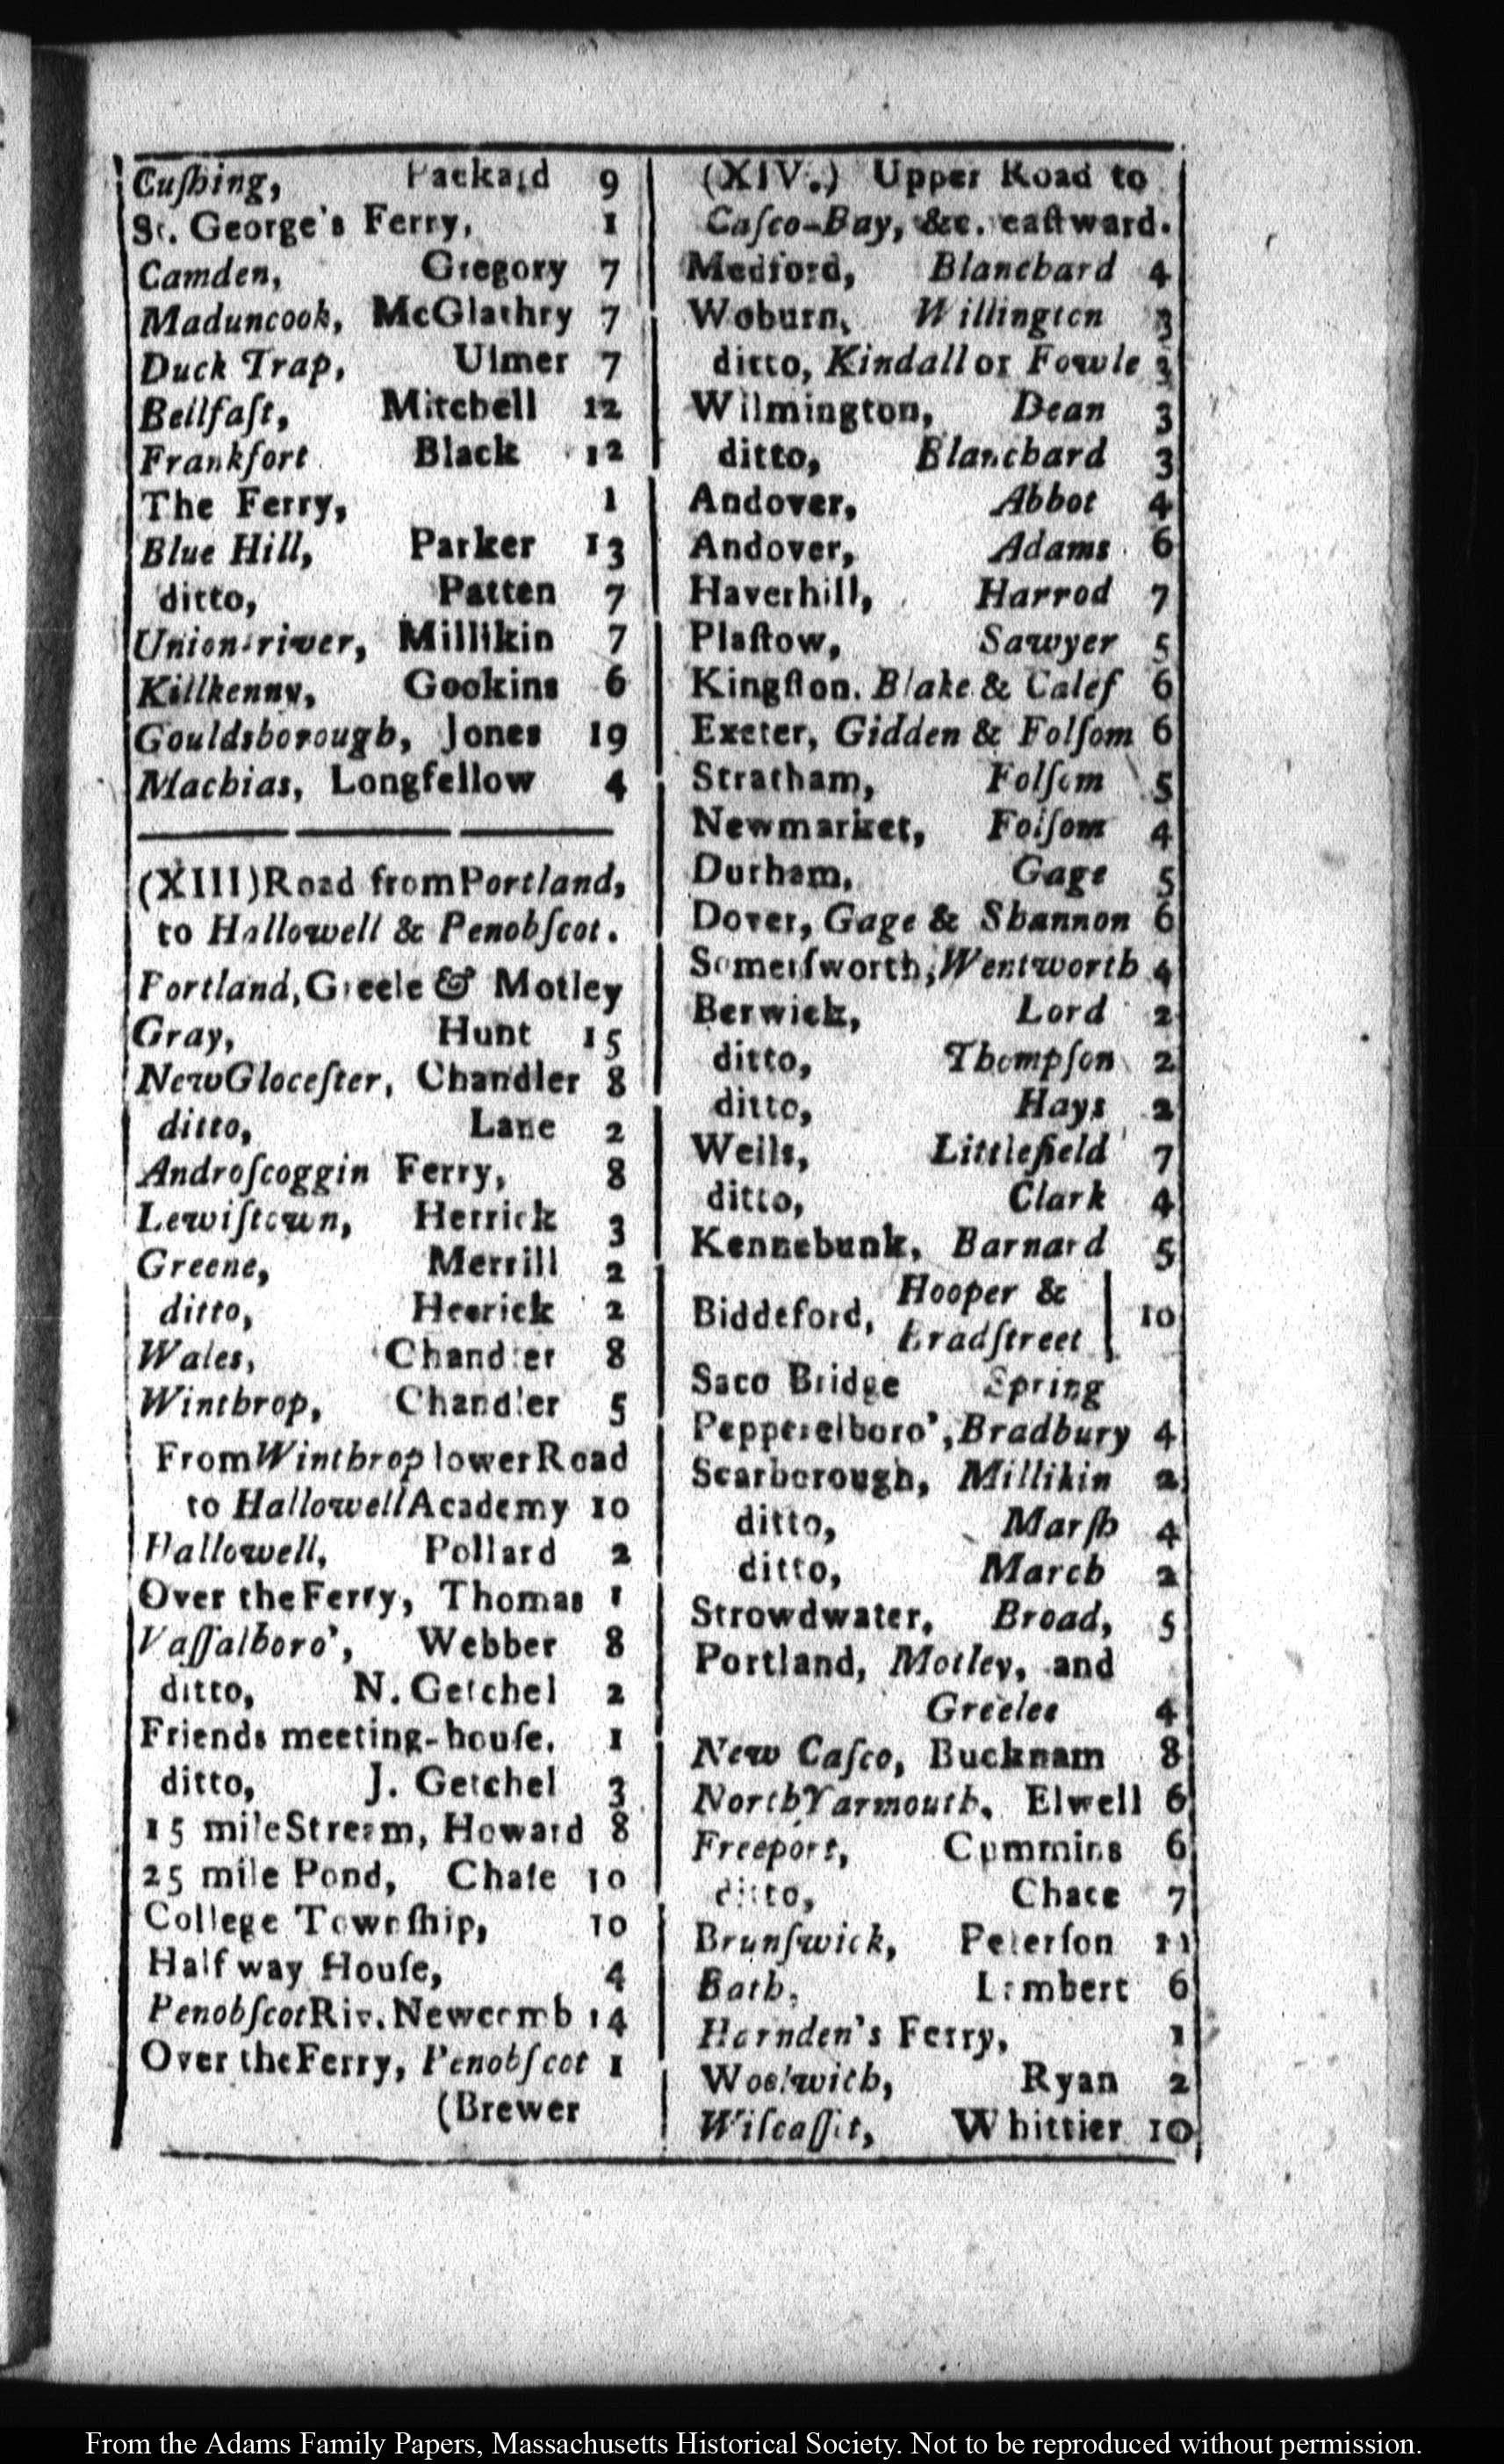 Cuſhing, Packard 9
St. George's Ferry, 1
Camden, Gregory 7
Maduncook, McGlathry 7
Duck Trap, Ulmer 7
Bellfaſt, Mitchell 12
Frankfort Black 12
The Ferry, 1
Blue Hill, Parker 13
ditto, Patten 7
Union-river, Millikin 7
Killkenny, Gookins 6
Gouldsborough, Jones 19
Machias, Longfellow 4
(XIII) Road from Portland,
to Hallowell & Penobſcot.
Portland, Greele & Motley
Gray, Hunt 15
New Gloceſter, Chandler 8
ditto, Lane 2
Androſcoggin Ferry, 8
Lewiſtown, Herrick 3
Greene, Merrill 2
ditto, Herrick 2
Wales, Chandler 8
Winthrop, Chandler 5
From Winthrop lower Road
to Hallowell Academy 10
Hallowell, Pollard 2
Over the Ferry, Thomas 1
Vaſſalboro', Webber 8
ditto, N. Getchel 2
Friends meeting-houſe, 1
ditto, J. Getchel 3
15 mile Stream, Howard 8
25 mile Pond, Chaſe 10
College Townſhip, 10
Half way Houſe, 4
Penobſcot Riv. Newcomb 14
Over the Ferry, Penobſcot 1
(Brewer
(XIV.) Upper Road to
Caſco-Bay, &c. eaſtward.
Medford, Blanchard 4
Woburn, Willington 3
ditto, Kindall or Fowle 3
Wilmington, Dean 3
ditto, Blanchard 3
Andover, Abbot 4
Andover, Adams 6
Haverhill, Harrod 7
Plaſtow, Sawyer 5
Kingſton. Blake & Calef 6
Exeter, Gidden & Folſom 6
Stratham, Folſom 5
Newmarket, Folſom 4
Durham, Gage 5
Dover, Gage & Shannon 6
Somerſworth, Wentworth 4
Berwick, Lord 2
ditto, Thompſon 2
ditto, Hays 2
Wells, Littlefield 7
ditto, Clark 4
Kennebunk, Barnard 5
Biddeford, Hooper &
Bradſtreet 10
Saco Bridge Spring
Pepperelboro', Bradbury 4
Scarborough, Millikin 2
ditto, Marſh 4
ditto, March 2
Strowdwater, Broad, 5
Portland, Motley, and
Greeles 4
New Caſco, Bucknam 8
North Yarmouth, Elwell 6
Freeport, Cummins 6
ditto, Chace 7
Brunſwick, Peterſon 11
Bath, Lambert 6
Harnden's Ferry, 1
Woolwich, Ryan 2
Wiſcaſſit, Whittier 10
From the Adams Family Papers, Massachusetts Historical Society. Not to be reproduced without permission.